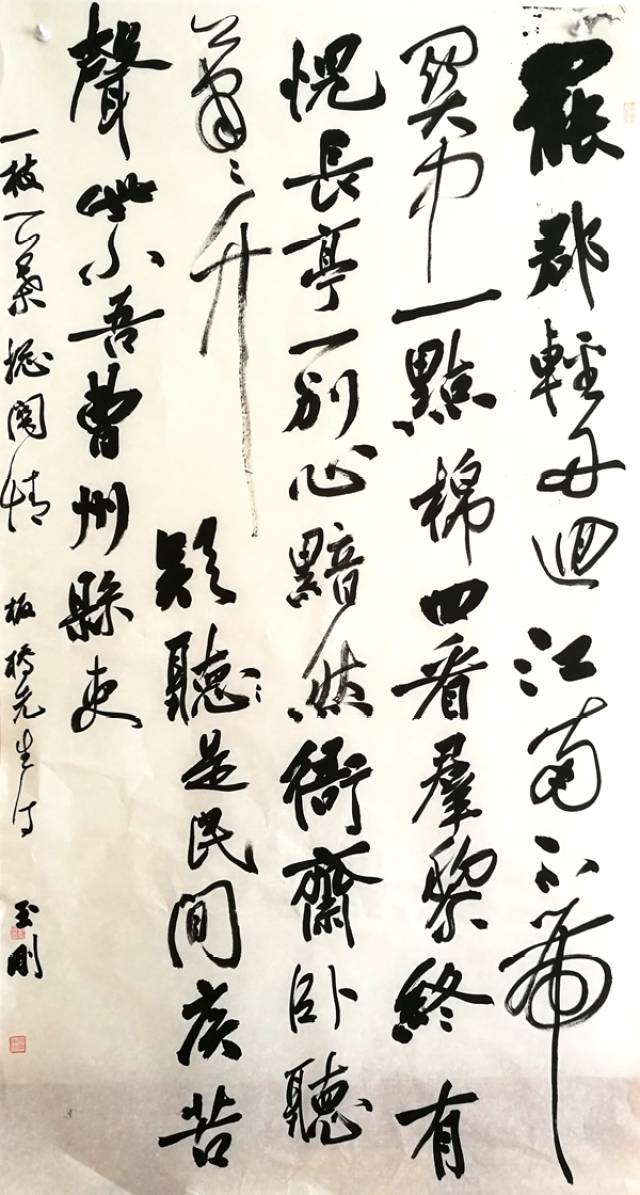 罷郡輕舟迴江南不帶
關中一點棉回看羣黎終有
愧長亭一別心黯然衙齋卧聽
蕭〻竹疑聽〻是民間疾苦
聲些小吾曹州縣吏
一枝一葉總關情 板橋先生詩 玉剛